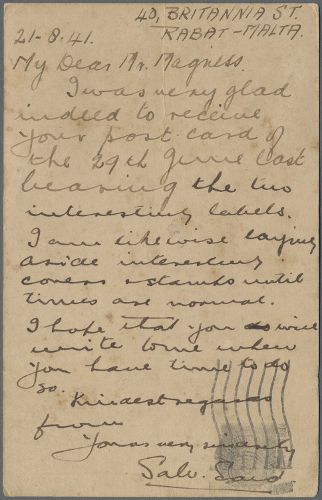 40, BRITANNIA ST.
RABAT-MALTA.
21-8.41.
My Dear Mr. Magness.
I was very glad
indeed to receive
your post card of
the 29th June last
bearing the two
interesting labels.
I am likewise laying
aside interesting
covers & stamps until
times are normal.
I hope that you will
write to me when
you have time to do
so.
Kindest regards
from
Yours very sincerely
Salv. Said